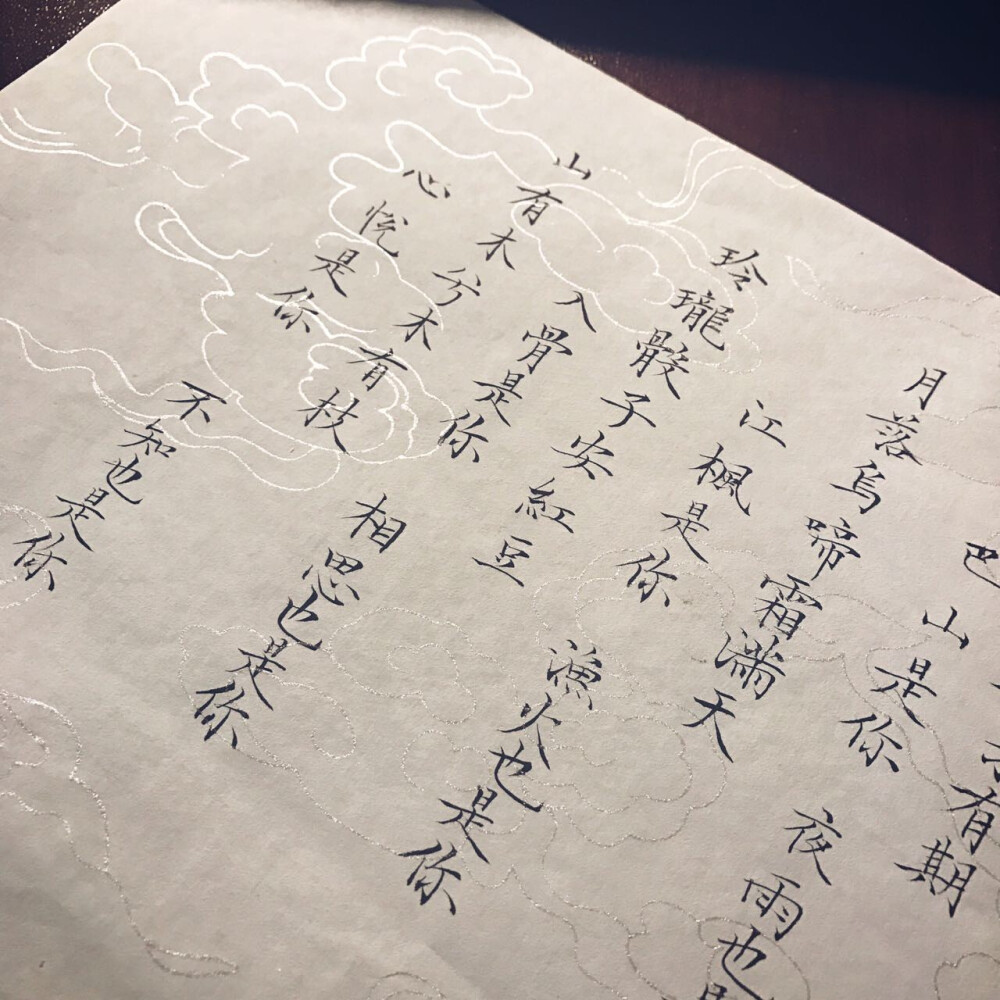 有期
巴山是你
夜雨也
月落烏啼霜滿天
江楓是你
漁火也是你
玲瓏骰子安紅豆
入骨是你
相思也是你
山有木兮木有枝
心悅是你
不知也是你